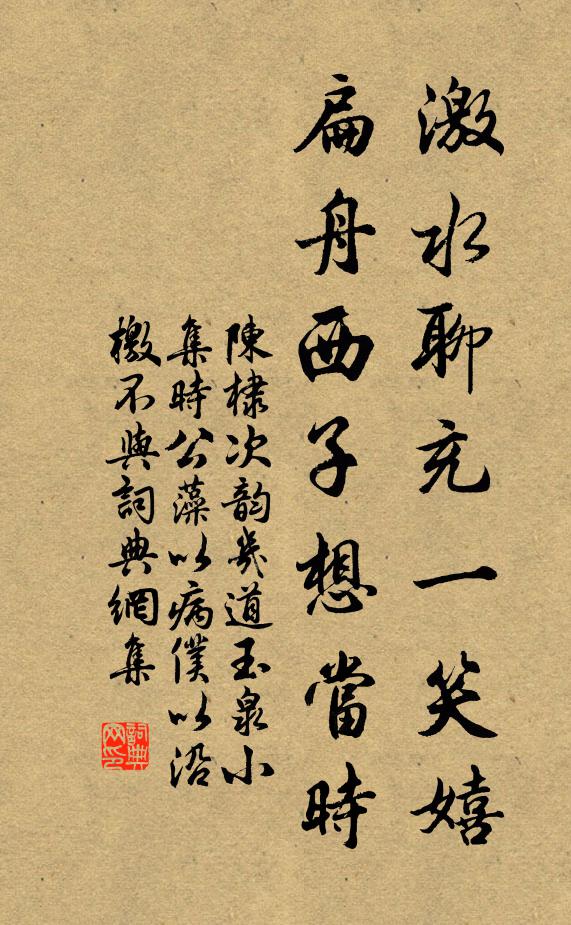 激水聊充一笑嬉
扁舟西子想當時
陳棣次韵幾道玉泉小
集時公藻以病僕以沿
檄不與詞典網集
詞典
网印